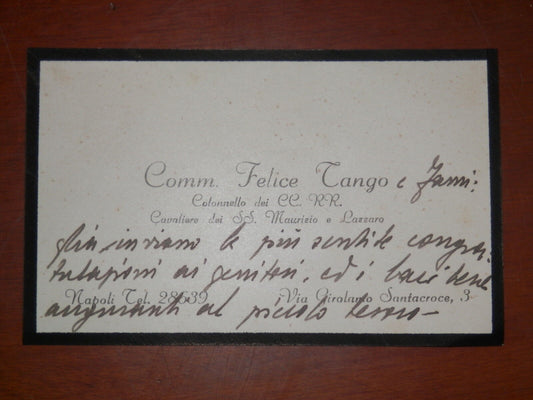 Comm. Felice Tango e Fami:
Colonnello dei CC. RR.
Cavaliere dei S.S. Maurizio e Lazzaro
glia inviano le più sentite congra,
tulazioni ai genitori, ed i baci bene
Napoli Tel. 28539 Via Girolamo Santacroce, 3
auguranti al piccolo tesoro-